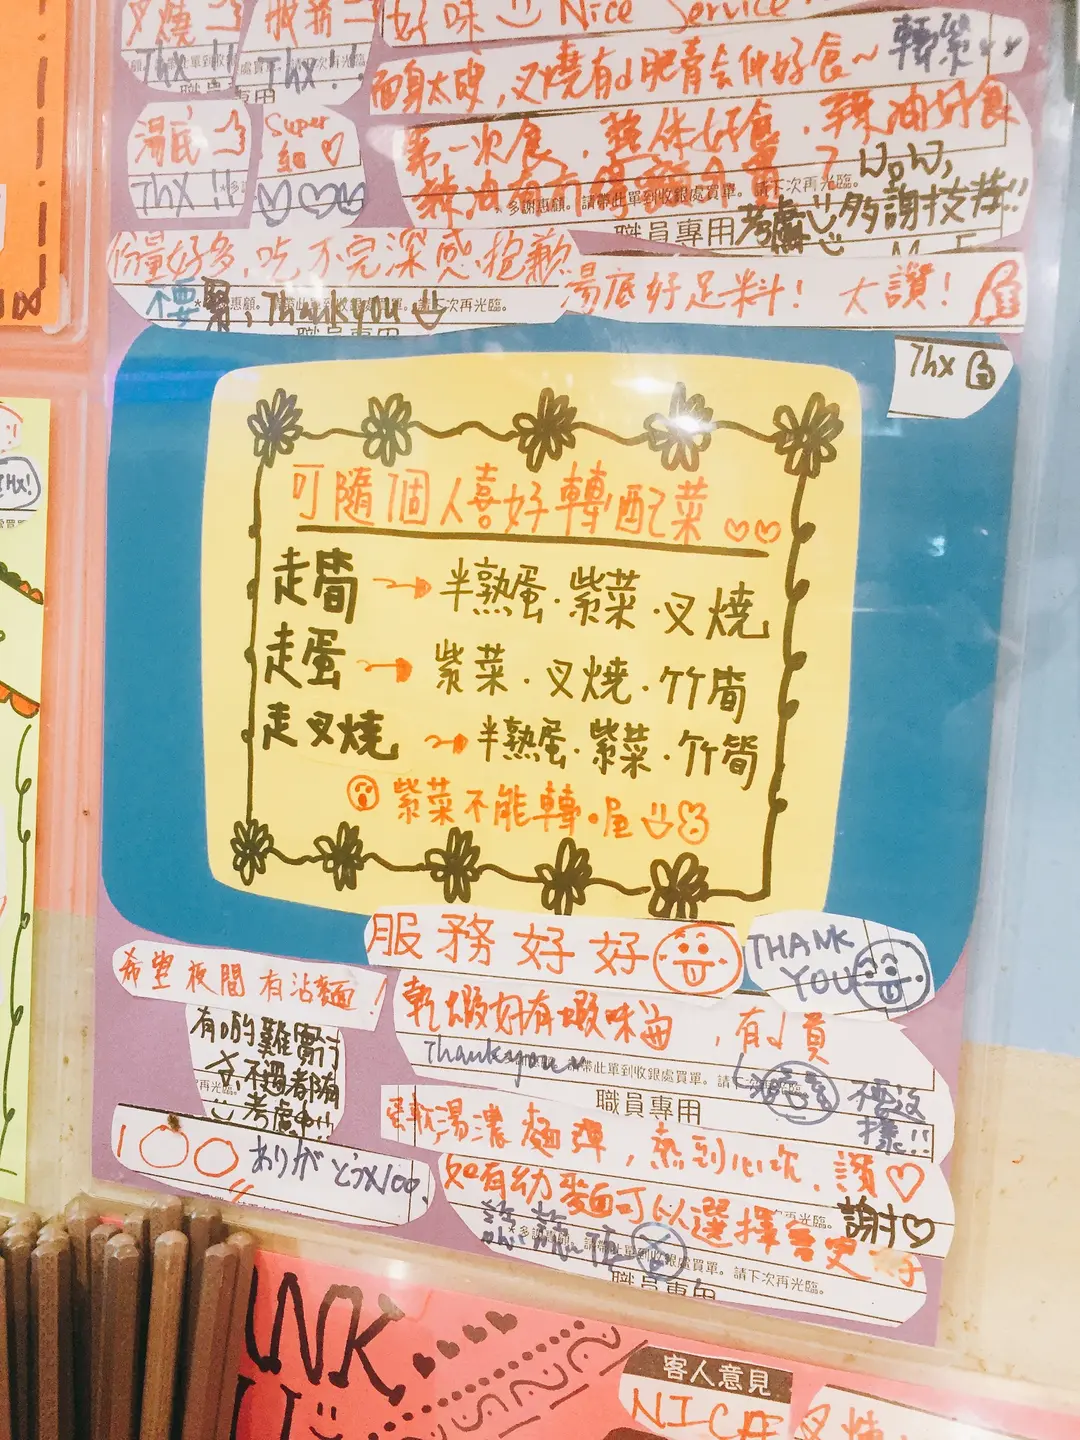 叉燒
Thx!!
服務
Thx!!
好味 Nice Service
面身太硬,叉燒有d肥膏会仲好食~
轉漿
湯底
Thx!!
Super
第一次食,整体好食,辣油好食
*多謝惠顧。請帶此單到收銀處買單。請下次再光臨。
職員專用
Wow,
考慮 多謝支持!!
份量好多,吃不完深感抱歉
不要緊, Thank you
湯底好足料!太讚!
Thx
可隨個人喜好轉配菜
走筍→半熟蛋.紫菜.叉燒
走蛋→紫菜.叉燒.竹筍
走叉燒→半熟蛋.紫菜.竹筍
紫菜不能轉。
服務好好
THANK YOU
希望夜間有沾麵!
有d的難實行
不過都隨
考慮中!!
乾蝦好有蝦味
,有d貴
Thankyou
請帶此單到收銀處買單。請下次再光臨。
職員專用
湯濃麵彈,熱到心坎,讚♡
100
ありがとうx100.
如有幼麵可以選擇會更好
謝謝♡
*多謝惠顧。請帶此單到收銀處買單。請下次再光臨。
職員專用
客人意見
NICE
叉燒